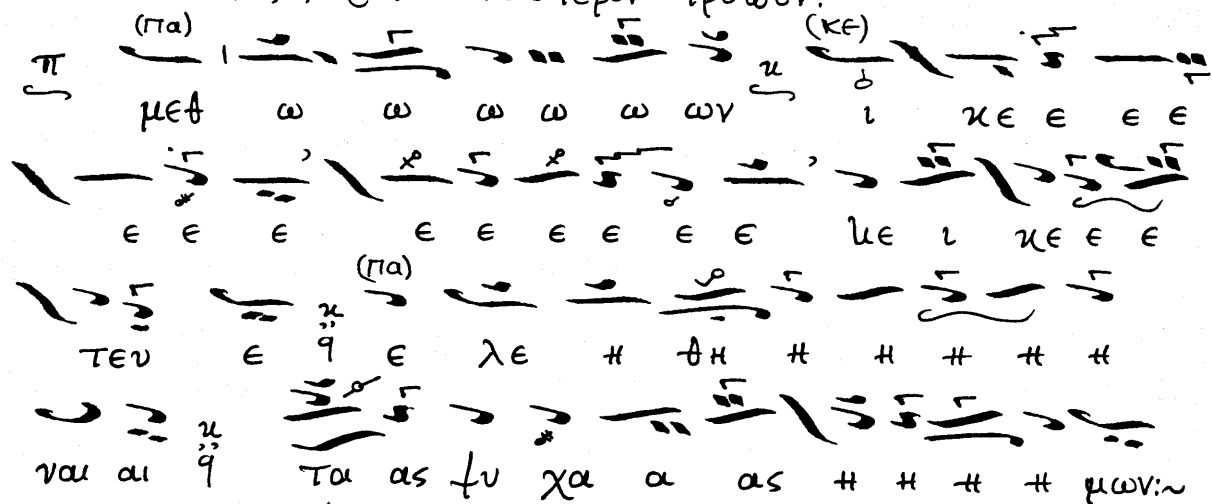 (πα) (κε)
π μεθ ω ω ω ω ω ων κ ι κε ε ε ε
ε ε ε ε ε ε ε ε ε κε ι κε ε ε
(πα)
τευ ε κ q ε λε η θη η η η η η
ναι αι κ q τα ας ψυ χα α ας η η η η μων:~